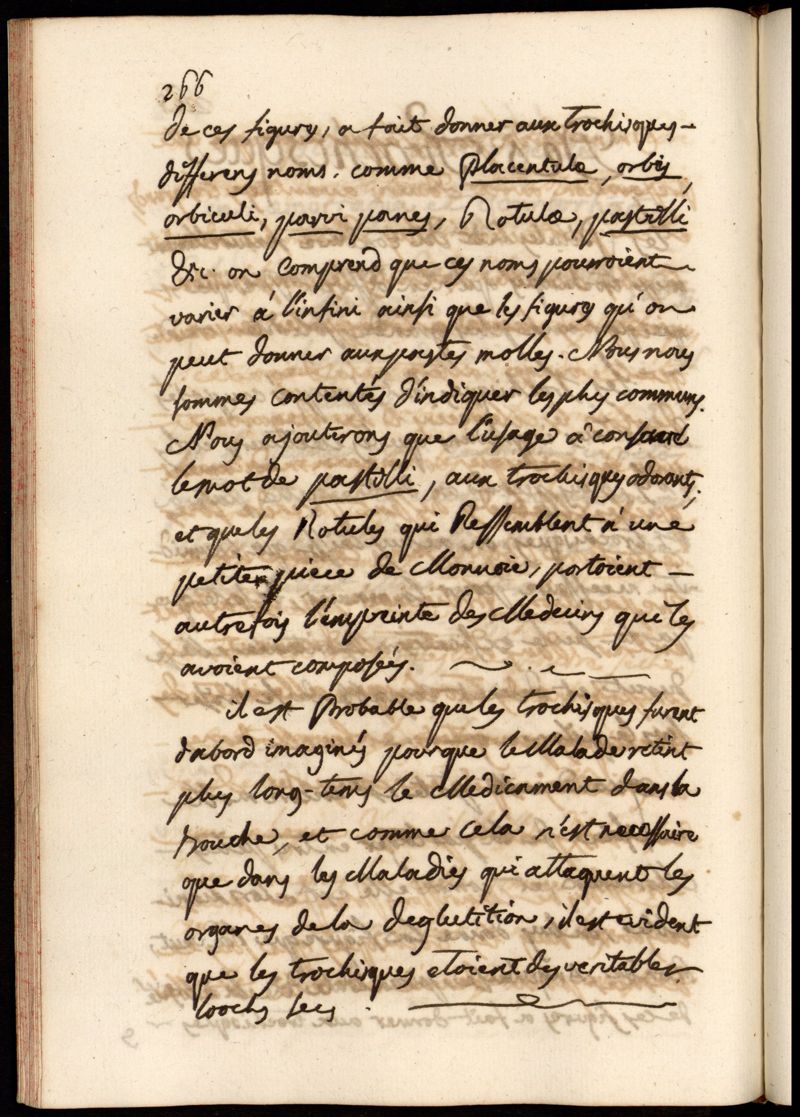 266
de ces figures, a fait donner aux trochisques -
differens noms. comme Placentulæ, orbis,
orbiculi, parvi panes, Rotulæ, pastilli
&c. on comprend que ces noms pourroient
varier à l'infini ainsi que les figures qu'on
peut donner aux pastes molles. Nous nous
sommes contentés d'indiquer les plus communs.
Nous ajouterons que l'usage a consacré
le mot de pastilli, aux trochisques odorants;
et que les Rotules qui Ressemblent à une
petite piece de Monnoie, portoient -
autrefois l'empreinte des Medecins qui les
avoient composés.
il est Probable que les trochisques furent
dabord imaginés pour que le Malade retint
plus long-tems le Medicament dans la
bouche, et comme cela n'est necessaire
que dans les Maladies qui attaquent les
organes de la deglutition, il est evident
que les trochisques etoient des veritables
loochs secs.